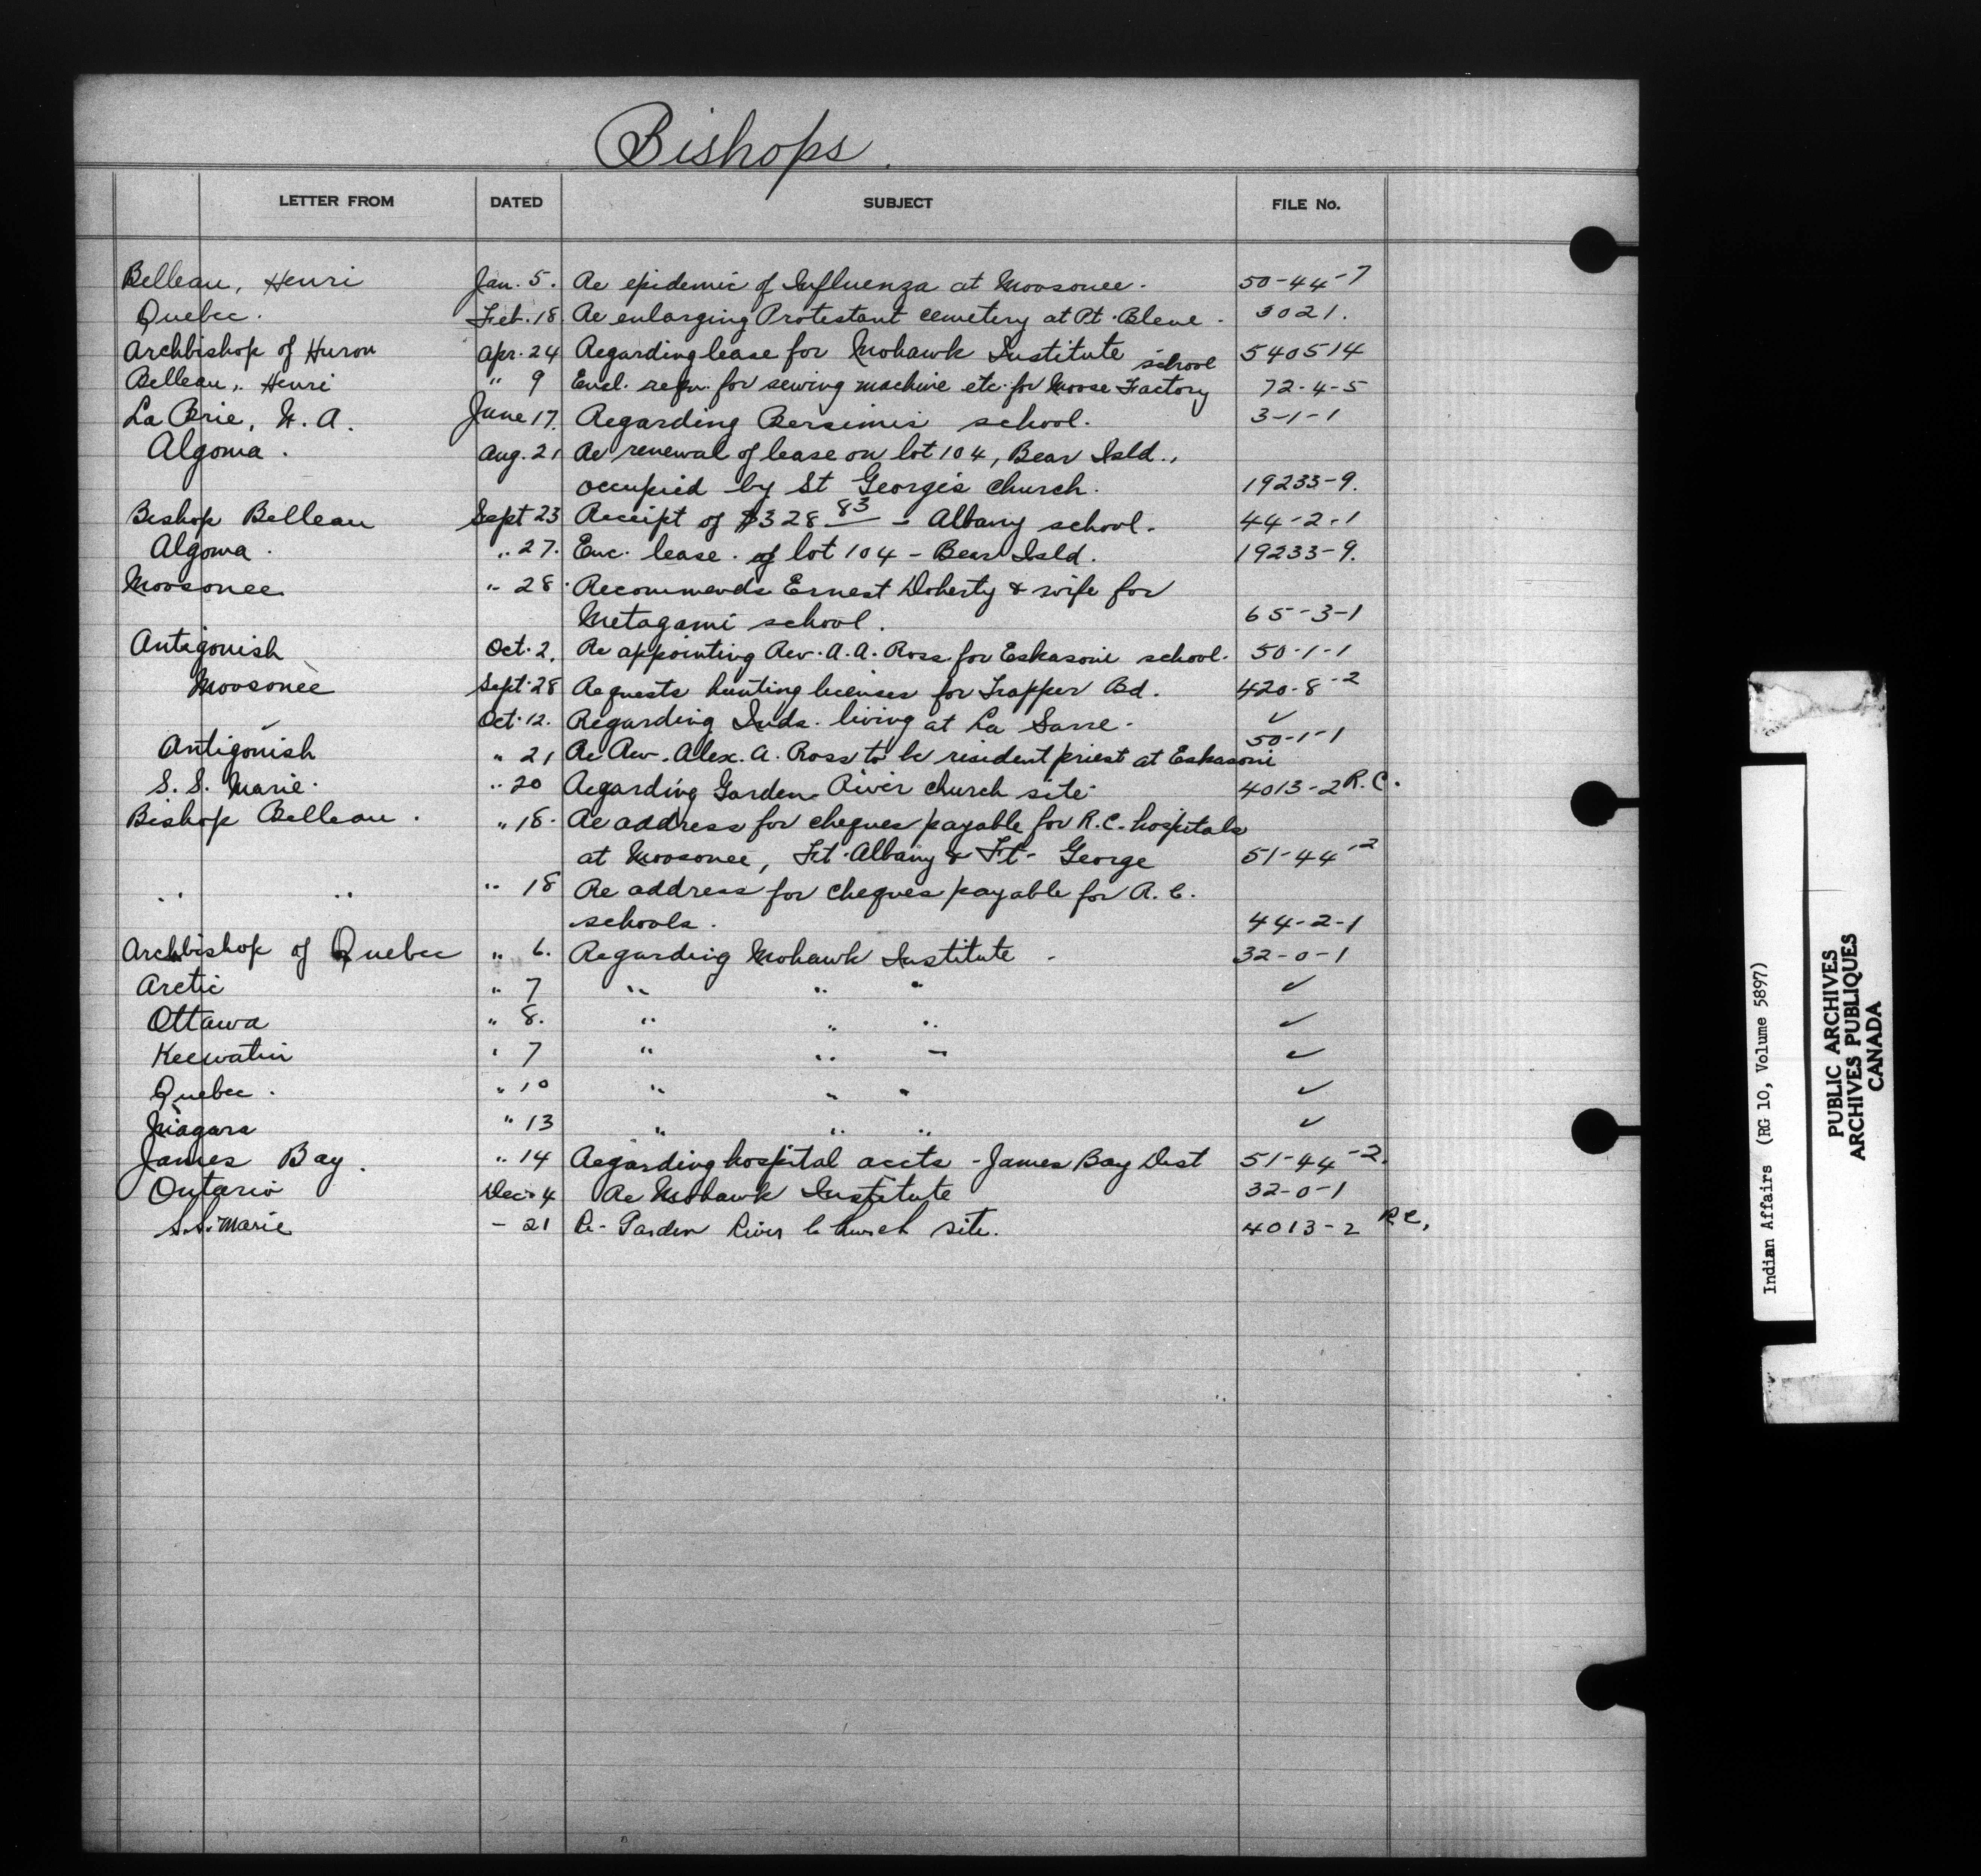 Bishops.
LETTER FROM DATED SUBJECT FILE No.
Belleau, Henri Jan. 5. Re epidemic of Influenza at Moosonee. 50-44-7
Quebec. Feb. 18. Re enlarging Protestant cemetery at Pt. Bleue. 3021.
Archbishop of Huron Apr. 24 Regarding lease for Mohawk Institute 540514
school
Belleau, Henri " 9 Encl. reqn. for sewing machine etc. for Moose Factory 72-4-5
La Brie, N. A. June 17. Regarding Bersimis school. 3-1-1
Algoma. Aug. 21 Re renewal of lease on lot 104, Bear Isld.,
occupied by St George's church. 19233-9.
Bishop Belleau Sept 23 Receipt of $328 83 - Albany school. 44-2-1
Algoma. " 27. Enc. lease of lot 104 - Bear Isld. 19233-9.
Moosonee " 28 Recommends Ernest Doherty & wife for
Metagami school. 65-3-1
Antigonish Oct. 2. Re appointing Rev. A. A. Ross for Eskasoni school. 50-1-1
Moosonee Sept. 28 Requests hunting licenses for Trapper Bd. 420-8-2
" Oct. 12. Regarding Inds. living at La Sarre. ✓
Antigonish " 21 Re Rev. Alex. A. Ross to be resident priest at Eskasoni 50-1-1
S. S. Marie. " 20 Regarding Garden River church site 4013-2 R.C.
Bishop Belleau. " 18. Re address for cheques payable for R.C. hospitals
at Moosonee, Ft. Albany & Ft. George 51-44-2
" " " 18 Re address for cheques payable for R. C.
schools. 44-2-1
Archbishop of Quebec " 6. Regarding Mohawk Institute - 32-0-1
Arctic " 7 " " " ✓
Ottawa " 8. " " " ✓
Keewatin " 7 " " " ✓
Quebec. " 10 " " " ✓
Niagara " 13 " " " ✓
James Bay. " 14 Regarding hospital accts - James Bay Dist 51-44-2.
Ontario Dec. 4 Re Mohawk Institute 32-0-1
S.S. Marie - 21 Re- Garden River Church site. 4013-2 R.C.
Indian Affairs (RG 10, Volume 5897)
PUBLIC ARCHIVES
ARCHIVES PUBLIQUES
CANADA